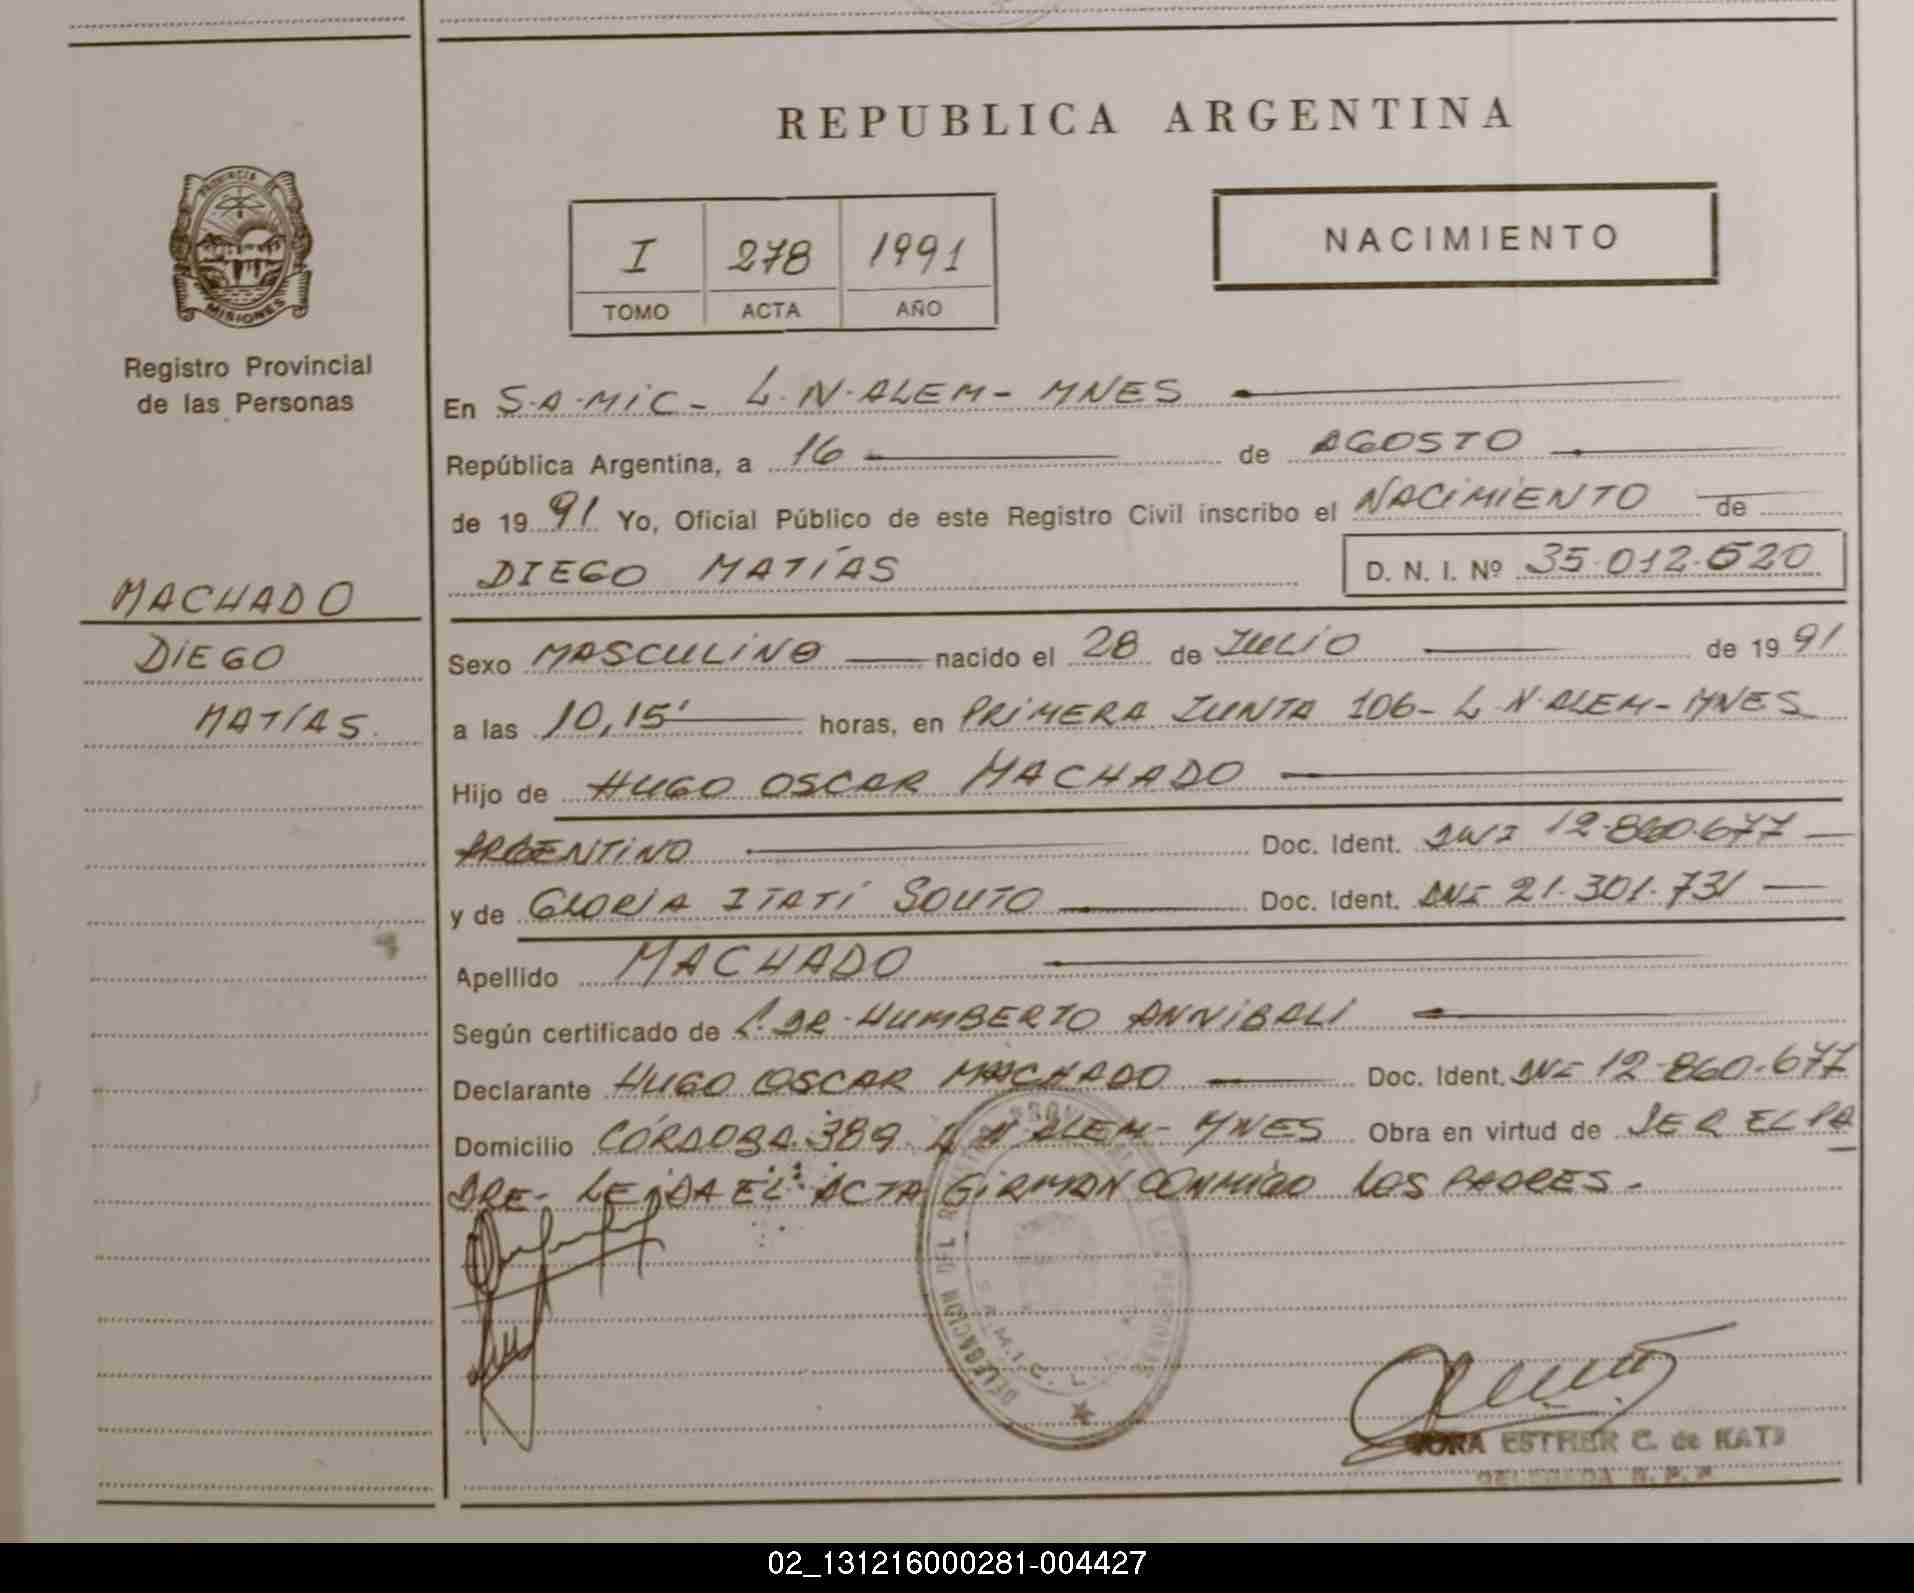 REPUBLICA ARGENTINA
PROVINCIA DE
MISIONES
Registro Provincial
de las Personas
I 278 1991
TOMO ACTA AÑO
NACIMIENTO
MACHADO
DIEGO
MATÍAS.
En S.A.MIC- L.N.ALEM- MNES
República Argentina, a 16 de AGOSTO
de 1991 Yo, Oficial Público de este Registro Civil inscribo el NACIMIENTO de
DIEGO MATÍAS D. N. I. Nº 35.012.520
Sexo MASCULINO nacido el 28 de JULIO de 1991
a las 10,15' horas, en PRIMERA JUNTA 106- L.N.ALEM- MNES
Hijo de HUGO OSCAR MACHADO
ARGENTINO Doc. Ident. DNI 12.860.677
y de GLORIA ITATÍ SOUTO Doc. Ident. DNI 21.301.731
Apellido MACHADO
Según certificado de DR. HUMBERTO ANNIBALI
Declarante HUGO OSCAR MACHADO Doc. Ident. DNI 12.860.677
Domicilio CÓRDOBA 389 L N ALEM- MNES Obra en virtud de SER EL PA
DRE- LEIDA EL ACTA FIRMAN CONMIGO LOS PADRES.
DELEGACION DEL
S.A.M.I.C. L.
ESTHER C. de KATZ
02_131216000281-004427